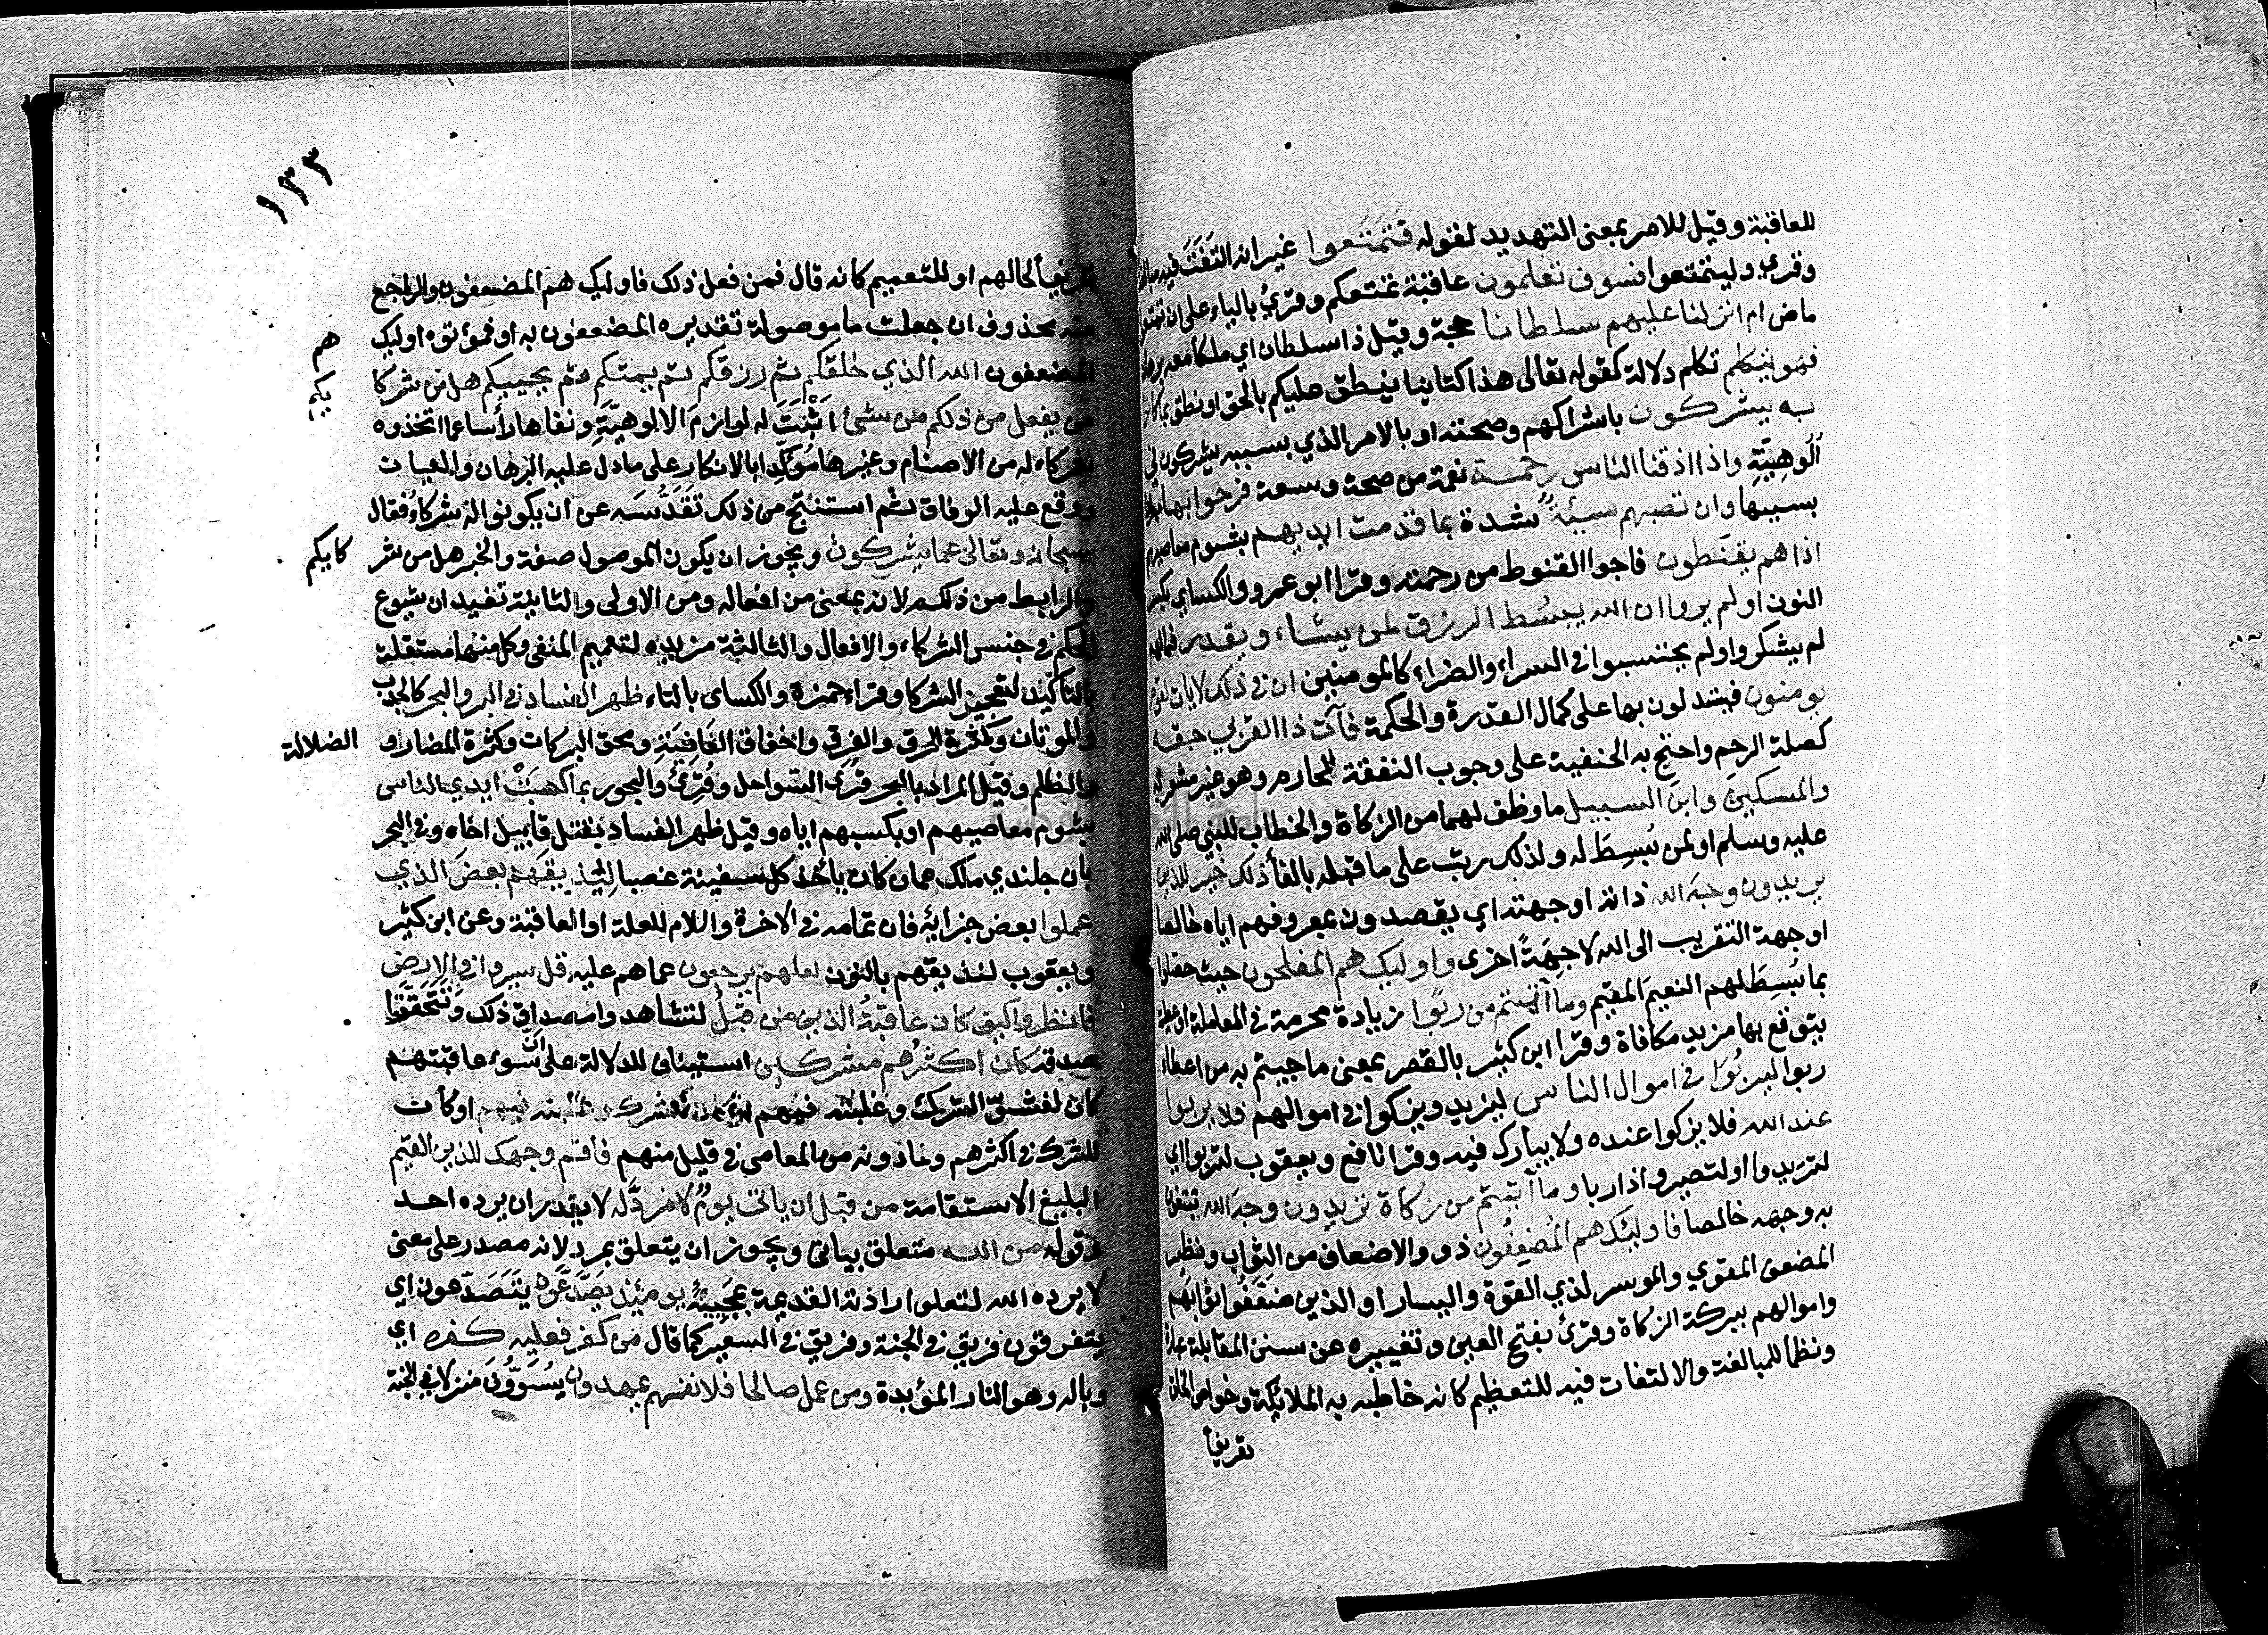 للعاقبة وقيل للامر بمعنى التهديد لقوله فَتَمَتَّعوا غير انه التَفَتَ فيه
وقرئ وليتمتعوا فسوف تعلمون عاقبة تمتعكم وقرئ بالياء على ان تمتعوا
ماض ام انزلنا عليهم سلطانا حجة وقيل ذا سلطان اي ملكا معه برهان
فهو يتكلم تكلم دلالة كقوله تعالى هذا كتابنا ينطق عليكم بالحق او نطق بما كانوا
به يشركون باشراكهم وصحته او بالامر الذي بسببه يشركون في
اُلُوهِيَّةِ واذا اذقنا الناس رحمة نعمة من صحة وسعة فرحوا بها
بسببها وان تصبهم سيئةٌ شدة بما قدمت ايديهم بشوم معاصيهم
اذا هم يقنَطون فاجوا القنوط من رحمته وقرا ابو عمرو والكساي بكسر
النون اولم يروا ان الله يبسُط الرزق لمن يشاء ويقدر فمالهم
لم يشكروا ولم يحتسبوا في السراء والضراء كالمومنين ان في ذلك لايات لقوم
يومنون فيتدلون بها على كمال القدرة والحكمة فآت ذا القربي حقه
كصلة الرحم واحتج به الحنفية على وجوب النفقة للمحارم وهو غير مشعر به
والمسكينَ وابنَ السبيل ما وظف لهما من الزكاة والخطاب للنبي صلى الله
عليه وسلم او لمن بُسِطَ له ولذلك رتب على ما قبله بالفاً ذلك خير للذين
يريدون وجهَ الله ذاته او جهته اي يقصدون بمعروفهم اياه خالصا
او جهة التقريب الى الله لا جِهَةً اخرى واوليك هم المفلحون حيث حصلوا
بما بُسِطَ لهم النعيمَ المقيم وما آتيتم من ربًوا زيادة محرمة في المعاملة او عطية
يتوقع بها مزيد مكافاة وقرا ابن كثير بالقصر بمعنى ما جيتم به من اعطاء
ربوا ليربُوَا في اموال الناس ليزيد ويزكوا في اموالهم فلا يربوا
عند الله فلا يزكوا عنده ولا يبارك فيه وقرا نافع ويعقوب لتربوا اي
لتزيدوا او لتصيروا ذا ربا وما آتيتم من زكاة تريدون وجهَ الله تبتغون
به وجهه خالصا فاوليك هم المُضعِفُون ذوو الاضعاف من الثواب ونظير
المضعف المقوي والموسر لذي القوة واليسار او الذين ضَعَّفُوا ثوابَهم
واموالهم ببركة الزكاة وقرئ بفتح العين وتغييره عن سنن المقابلة عبارة
ونظما للمبالغة والالتفات فيه للتعظيم كانه خاطب به الملائكة وخواص الخلق
تعريفاً
١٣٣
تعريفاً لحالهم او للتعميم كانه قال فمن فعل ذلك فاوليك هم المضعِفون والراجع
منه محذوف ان جعلت ما موصولة تقديره المضعفون به او فموتوه اوليك
هم
المضعفون الله الذي خلقكم ثم رزقكم ثم يميتكم ثم يحييكم هل من شركا
يكم
من يفعل من ذلكم من شئ اَثْبَتَ له لوازمَ الالوهيَّةِ ونفاها رأسا عما اتخذوه
شركاء له من الاصنام وغيرها مُوكِّدا بالانكار على ما دل عليه البرهان والعيان
ووقع عليه الوفاق ثم استنتج من ذلك تَقَدُّسَه عن ان يكونوا له شركاءُ فقال
سبحانه وتعالى عما يشركون ويجوز ان يكون الموصول صفة والخبر هل من شر
كايكم
والرابط من ذلكم لانه بمعنى من افعاله ومن الاولى والثانية تفيد ان شيوع
الحكم في جنس الشركاء والافعال والثالثة مزيدة لتعميم المنفي وكل منها مستقلة
بالتاكيد لتعجيز الشركا وقراء حمزة والكساى بالتاء ظهر الفساد في البر والبحر كالجدب
والموتان وكثرة الحرق والغرق واخفاق الغَاصَّةِ ومحق البركات وكثرة المضار و
الضلالة
والظلم وقيل المراد بالبحر قرى السواحل وقُرِئَ والبحور بما كسبَتْ ايدي الناس
بشوم معاصيهم او بكسبهم اياه وقيل ظهر الفساد بقتل قابيل اخاه وفي البحر
بان جلندي ملك عمان كان يأخذ كل سفينة غصبا ليُذيقَهم بعضَ الذي
عملوا بعض جزايه فان تمامه في الاخرة واللام للعلة او العاقبة وعن ابن كثير
ويعقوب لنذيقهم بالنون لعلهم يرجعون عما هم عليه قل سيروا في الارض
فانظروا كيف كان عاقبةُ الذين من قبلُ لتشاهدوا مصداق ذلك وتَتَحَقَّقُوا
صدقه كان اكثرُهم مشركين استيناف للدلالة على اَنَّ سوء عاقبتهم
كان لفشوِّ الشرك وغلبته فيهم او كان
للشرك في اكثرهم وما دونه من المعاصى في قليل منهم فاقم وجهك للدين القيم
البليغ الاستقامة من قبل ان ياتى يومٌ لا مردَّ له لا يقدر ان يرده احد
وقوله من الله متعلق بياتى ويجوز ان يتعلق بمرد لانه مصدر على معنى
لا يرده الله لتعلق ارادته القديمة بمجيئه يومئذ يَصَّدَّعون يَتَصَدَّعون اي
يتفرقون فريق في الجنة وفريق في السعير كما قال من كفر فعليه كفره اي
وباله وهو النار المؤبدة ومن عمل صالحا فلانفسهم يمهدون يُسَوُّونَ منزلا في الجنة